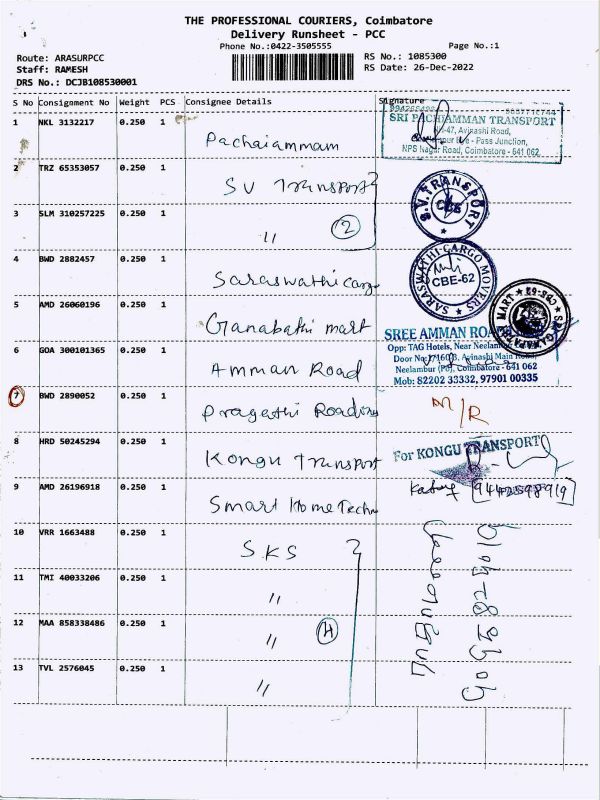 THE PROFESSIONAL COURIERS, Coimbatore
Delivery Runsheet - PCC
Phone No.:0422-3505555
Page No.:1
Route: ARASURPCC
RS No.: 1085300
Staff: RAMESH
RS Date: 26-Dec-2022
DRS No.: DCJB108530001
S No Consignment No Weight PCS Consignee Details Signature
1 NKL 3132217 0.250 1 Pachaiammam
SRI PACHIAMMAN TRANSPORT
Avinashi Road,
Bye - Pass Junction,
NPS Nagar Road, Coimbatore - 641 062.
2 TRZ 65353057 0.250 1 SV Transport
S.V. TRANSPORT
CBE
3 SLM 310257225 0.250 1 〃 2
4 BWD 2882457 0.250 1 Saraswathi cargo
SARASWATHI CARGO MOVERS
CBE-62
5 AMD 26060196 0.250 1 Ganabathi mart
SRI GANAPATHI MART
CBE-62
6 GOA 300101365 0.250 1 Amman Road
SREE AMMAN ROAD
Opp: TAG Hotels, Near Neelambur
Door No: 1/160B, Avinashi Main Road,
Neelambur (Po), Coimbatore - 641 062
Mob: 82202 33332, 97901 00335
7 BWD 2890052 0.250 1 Pragathi Roadings M/R
8 HRD 50245294 0.250 1 Kongu Transport
For KONGU TRANSPORT
9 AMD 26196918 0.250 1 Smart Home Techn
10 VRR 1663488 0.250 1 SKS
11 TMI 40033206 0.250 1 〃
12 MAA 858338486 0.250 1 〃 4
13 TVL 2576045 0.250 1 〃